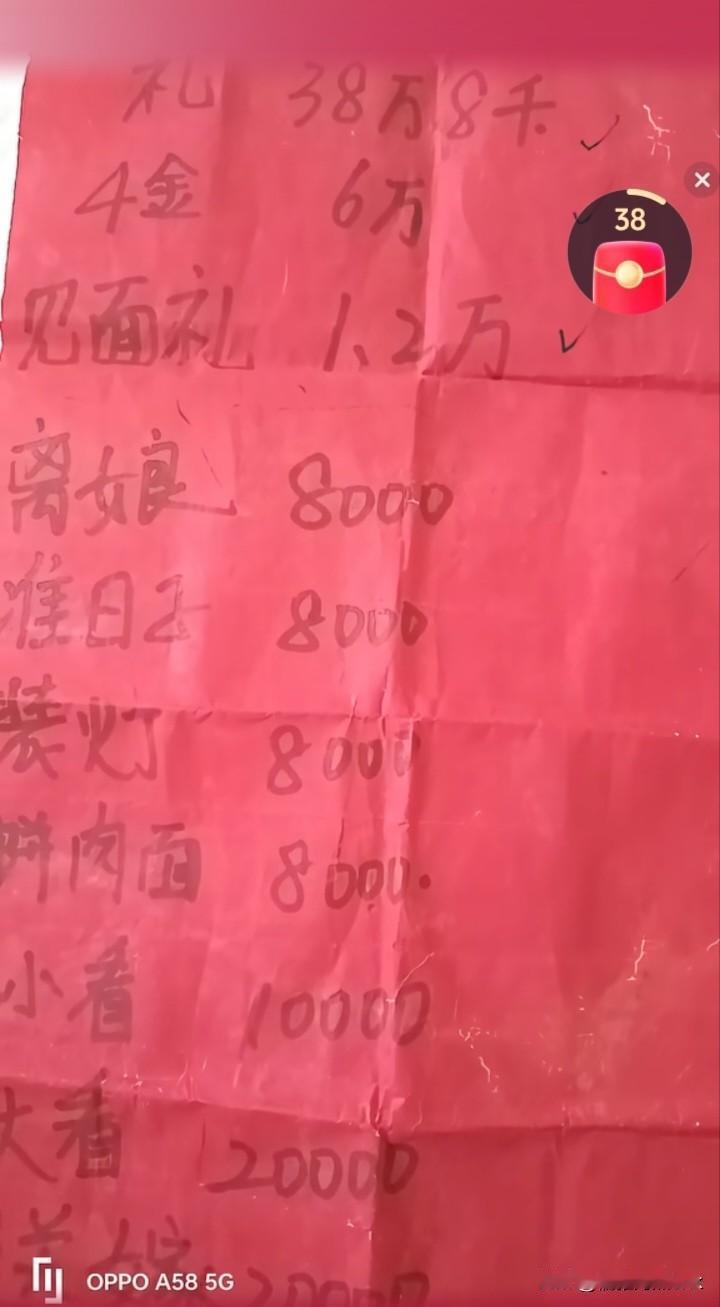 礼 38万8千
4金 6万
38
见面礼 1.2万
离娘 8000
准日子 8000
装灯 8000
饼肉面 8000.
小看 10000
大看 20000
20000
OPPO A58 5G